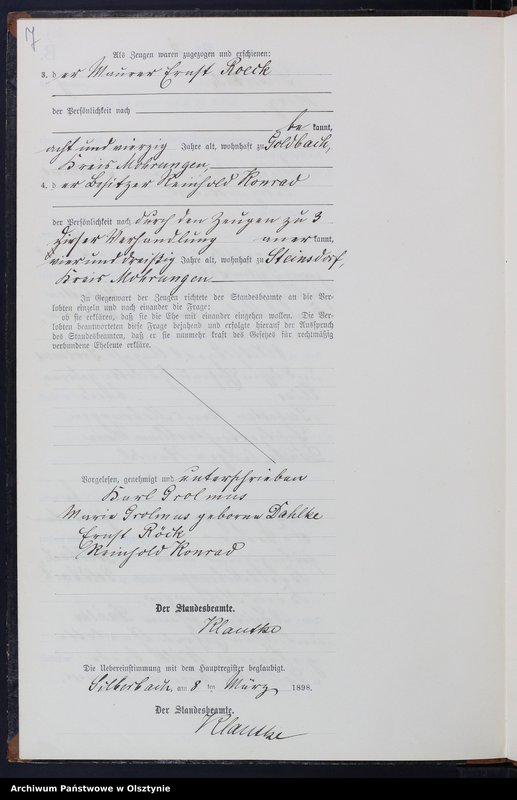 7
Als Zeugen waren zugezogen und erschienen:
3. der Maurer Ernst Roeck
der Persönlichkeit nach
be kannt,
acht und vierzig Jahre alt, wohnhaft zu Goldbach,
Kreis Mohrungen
4. der Besitzer Reinhold Konrad
der Persönlichkeit nach durch den Zeugen zu 3
dieser Verhandlung anerkannt,
vier und dreißig Jahre alt, wohnhaft zu Steinsdorf,
Kreis Mohrungen
In Gegenwart der Zeugen richtete der Standesbeamte an die Ver-
lobten einzeln und nach einander die Frage:
ob sie erklären, daß sie die Ehe mit einander eingehen wollen. Die Ver-
lobten beantworteten diese Frage bejahend und erfolgte hierauf der Ausspruch
des Standesbeamten, daß er sie nunmehr kraft des Gesetzes für rechtmäßig
verbundene Eheleute erkläre.
Vorgelesen, genehmigt und unterschrieben
Karl Grolmus
Marie Grolmus geborne Dahlke
Ernst Röck
Reinhold Konrad
Der Standesbeamte.
Klautke
Die Uebereinstimmung mit dem Hauptregister beglaubigt.
Silberbach, am 8 ten März 1898.
Der Standesbeamte.
Klautke
Archiwum Państwowe w Olsztynie